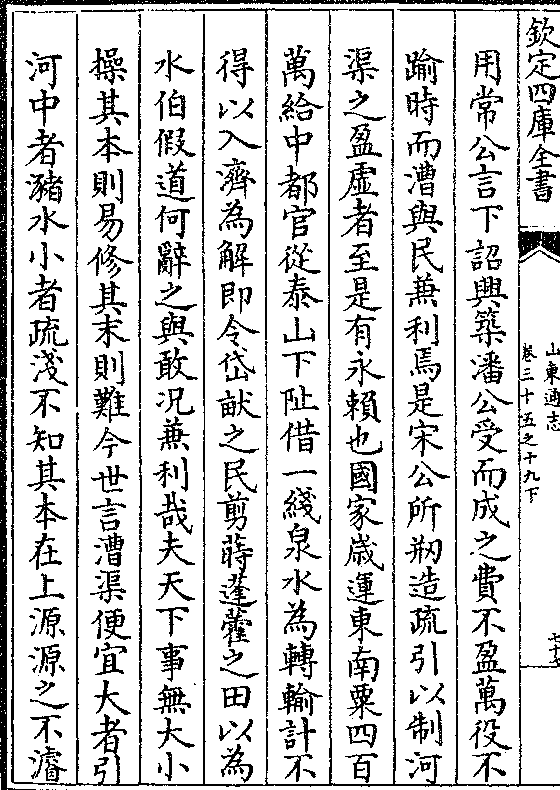 欽定四庫全書
山東通志
卷三十五之十九下
用常公言下詔興築潘公受而成之費不盈萬役不
踰時而漕與民兼利焉是宋公所刱造疏引以制河
渠之盈虛者至是有永賴也國家歲運東南粟四百
萬給中都官從泰山下阯借一綫泉水為轉輸計不
得以入濟為解即令岱畎之民剪蒔蓬藋之田以為
水伯假道何辭之與敢況兼利哉夫天下事無大小
操其本則易修其末則難今世言漕渠便宜大者引
河中者瀦水小者疏淺不知其本在上源源之不濬